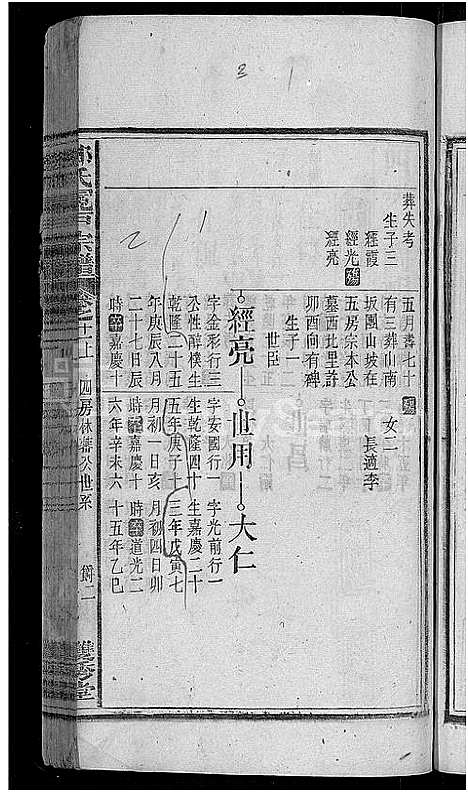 2 1
葬失考
生子三
經霞
經光殤
經亮
五月壽七十
有三葬山南
坂園山坡在
五房宗本公
墓西北里許
卯酉向有碑
生子一
世臣
殤
女二
長適李
經亮
世用
大仁
字金彩行三
公性醇樸生
乾隆二十五
年庚辰八月
二十七日辰
時卒嘉慶十
字安國行一
生乾隆四十
五年庚子十
月初一日亥
時卒嘉慶十
六年辛未六
字光前行一
生嘉慶二十
三年戊寅七
月初四日卯
時卒道光二
十五年乙巳
氏宗譜
卷之十上
四房林公世系
二
堂